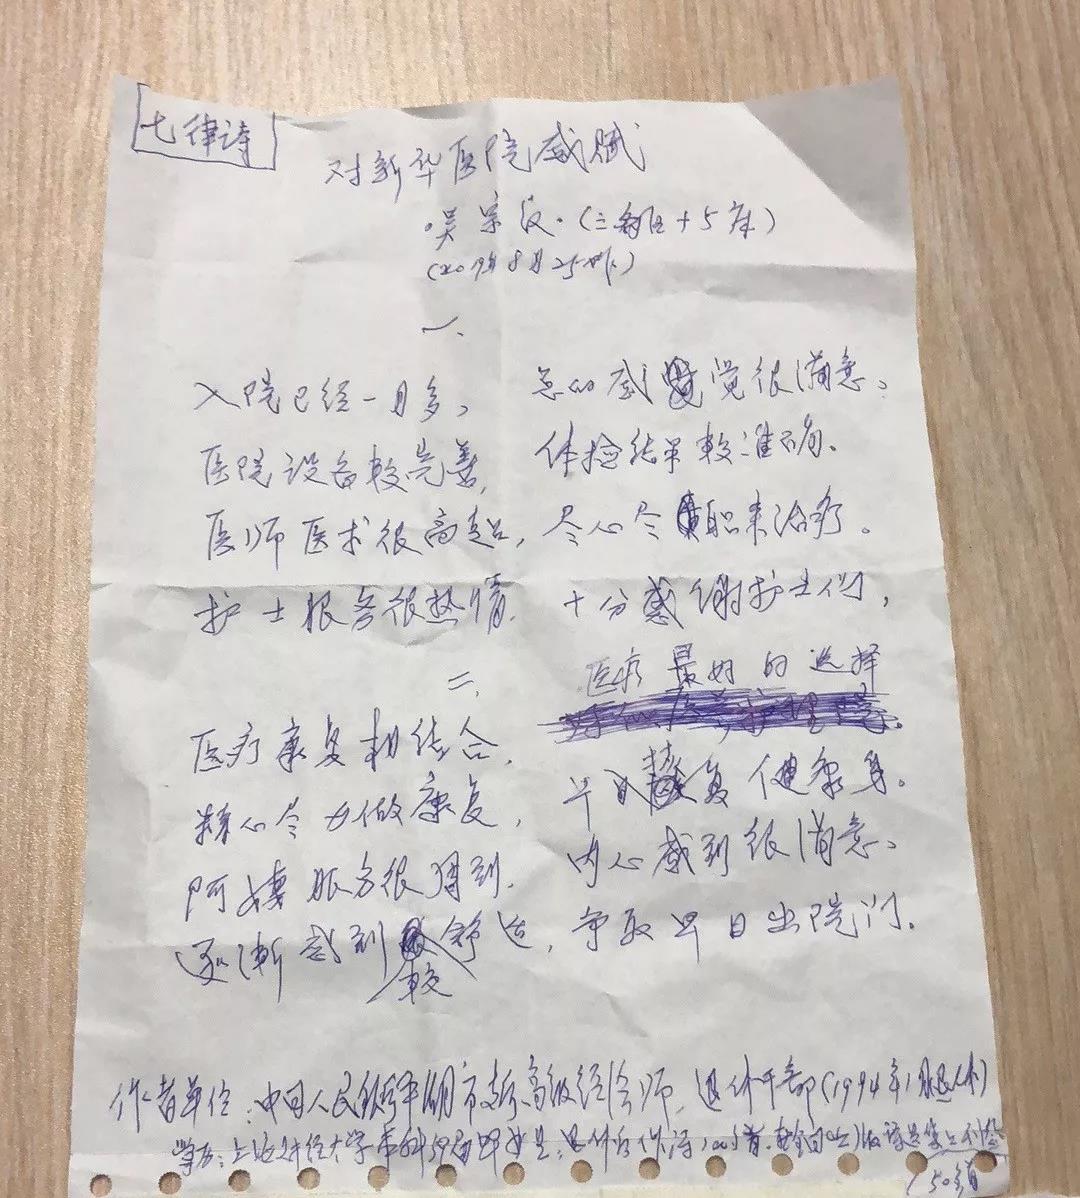 七律诗
对新华医院感赋
吴宗汉·(三病区+5床)
(2019年8月25昨)
一、
入院已经一月多, 总的感觉很满意。
医院设备较完善, 体捡结果较准确。
医师医术很高超, 尽心尽职来治疗。
护士服务很热情. 十分感谢护士们,
二、
医疗康复相结合, 医疗最好的选择
精心尽力做康复, 早日恢复健康身。
阿姨服务很周到. 内心感到很满意。
逐渐感到较舒适, 争取早日出院门.
作者单位:中国人民银行 市 高级经济师, 退休干部(1994年1月退休)
学历:上海财经大学本科59届毕业生;退休后作诗 首.
150首